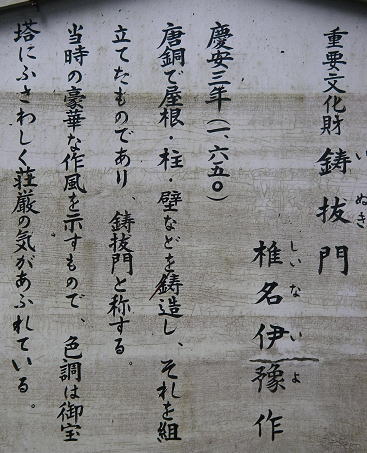 重要文化財 鋳抜門
い ぬき
椎名伊豫作
しい な い よ
慶安三年（一、六五〇）
唐銅で屋根・柱・壁などを鋳造し、それを組
立てたものであり、鋳抜門と称する。
当時の豪華な作風を示すもので、色調は御宝
塔にふさわしく荘厳の気があふれている。